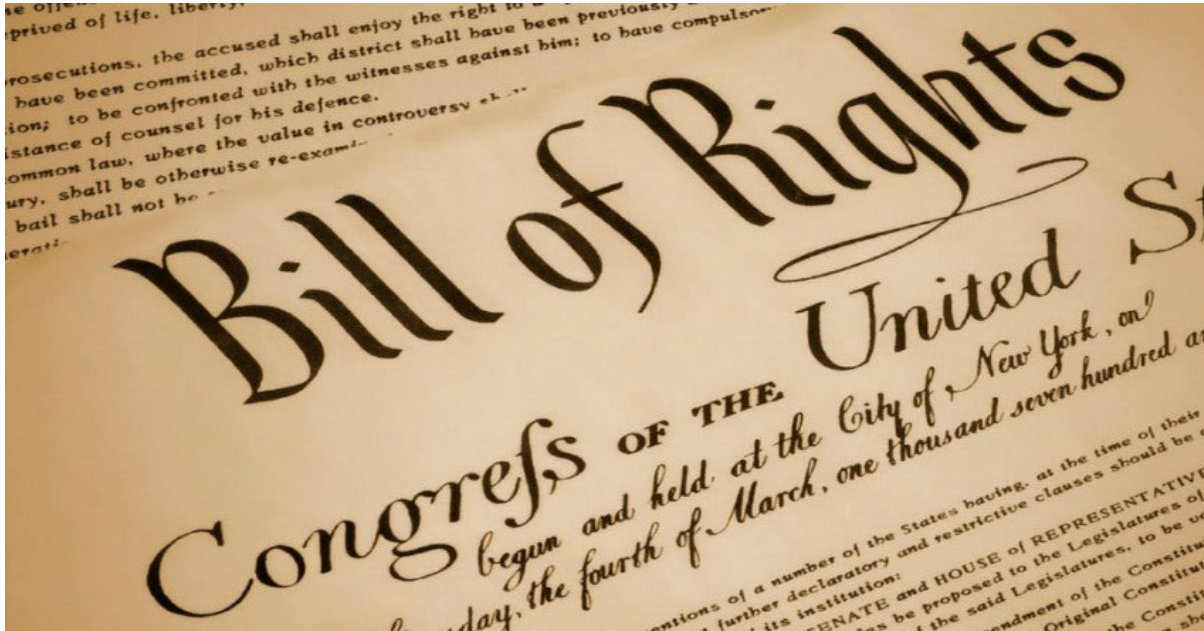 prived of life, liberty,
prosecutions, the accused shall enjoy the right to
have been committed, which district shall have been previously
ion; to be confronted with the witnesses against him; to have compulsor
istance of counsel for his defence.
ommon law, where the value in controversy
ury, shall be otherwise re-exam
bail shall not be
Bill of Rights
Congreſs OF THE United St
begun and held at the City of New York, on
day, the fourth of March, one thousand seven hundred a
entions of a number of the States having, at the time of their
further declaratory and restrictive clauses should be
its institution:
SENATE and HOUSE of REPRESENTATIVE
be proposed to the Legislatures o
the said Legislatures, to be
endment of the Constitu
Original Constitut
the Constit